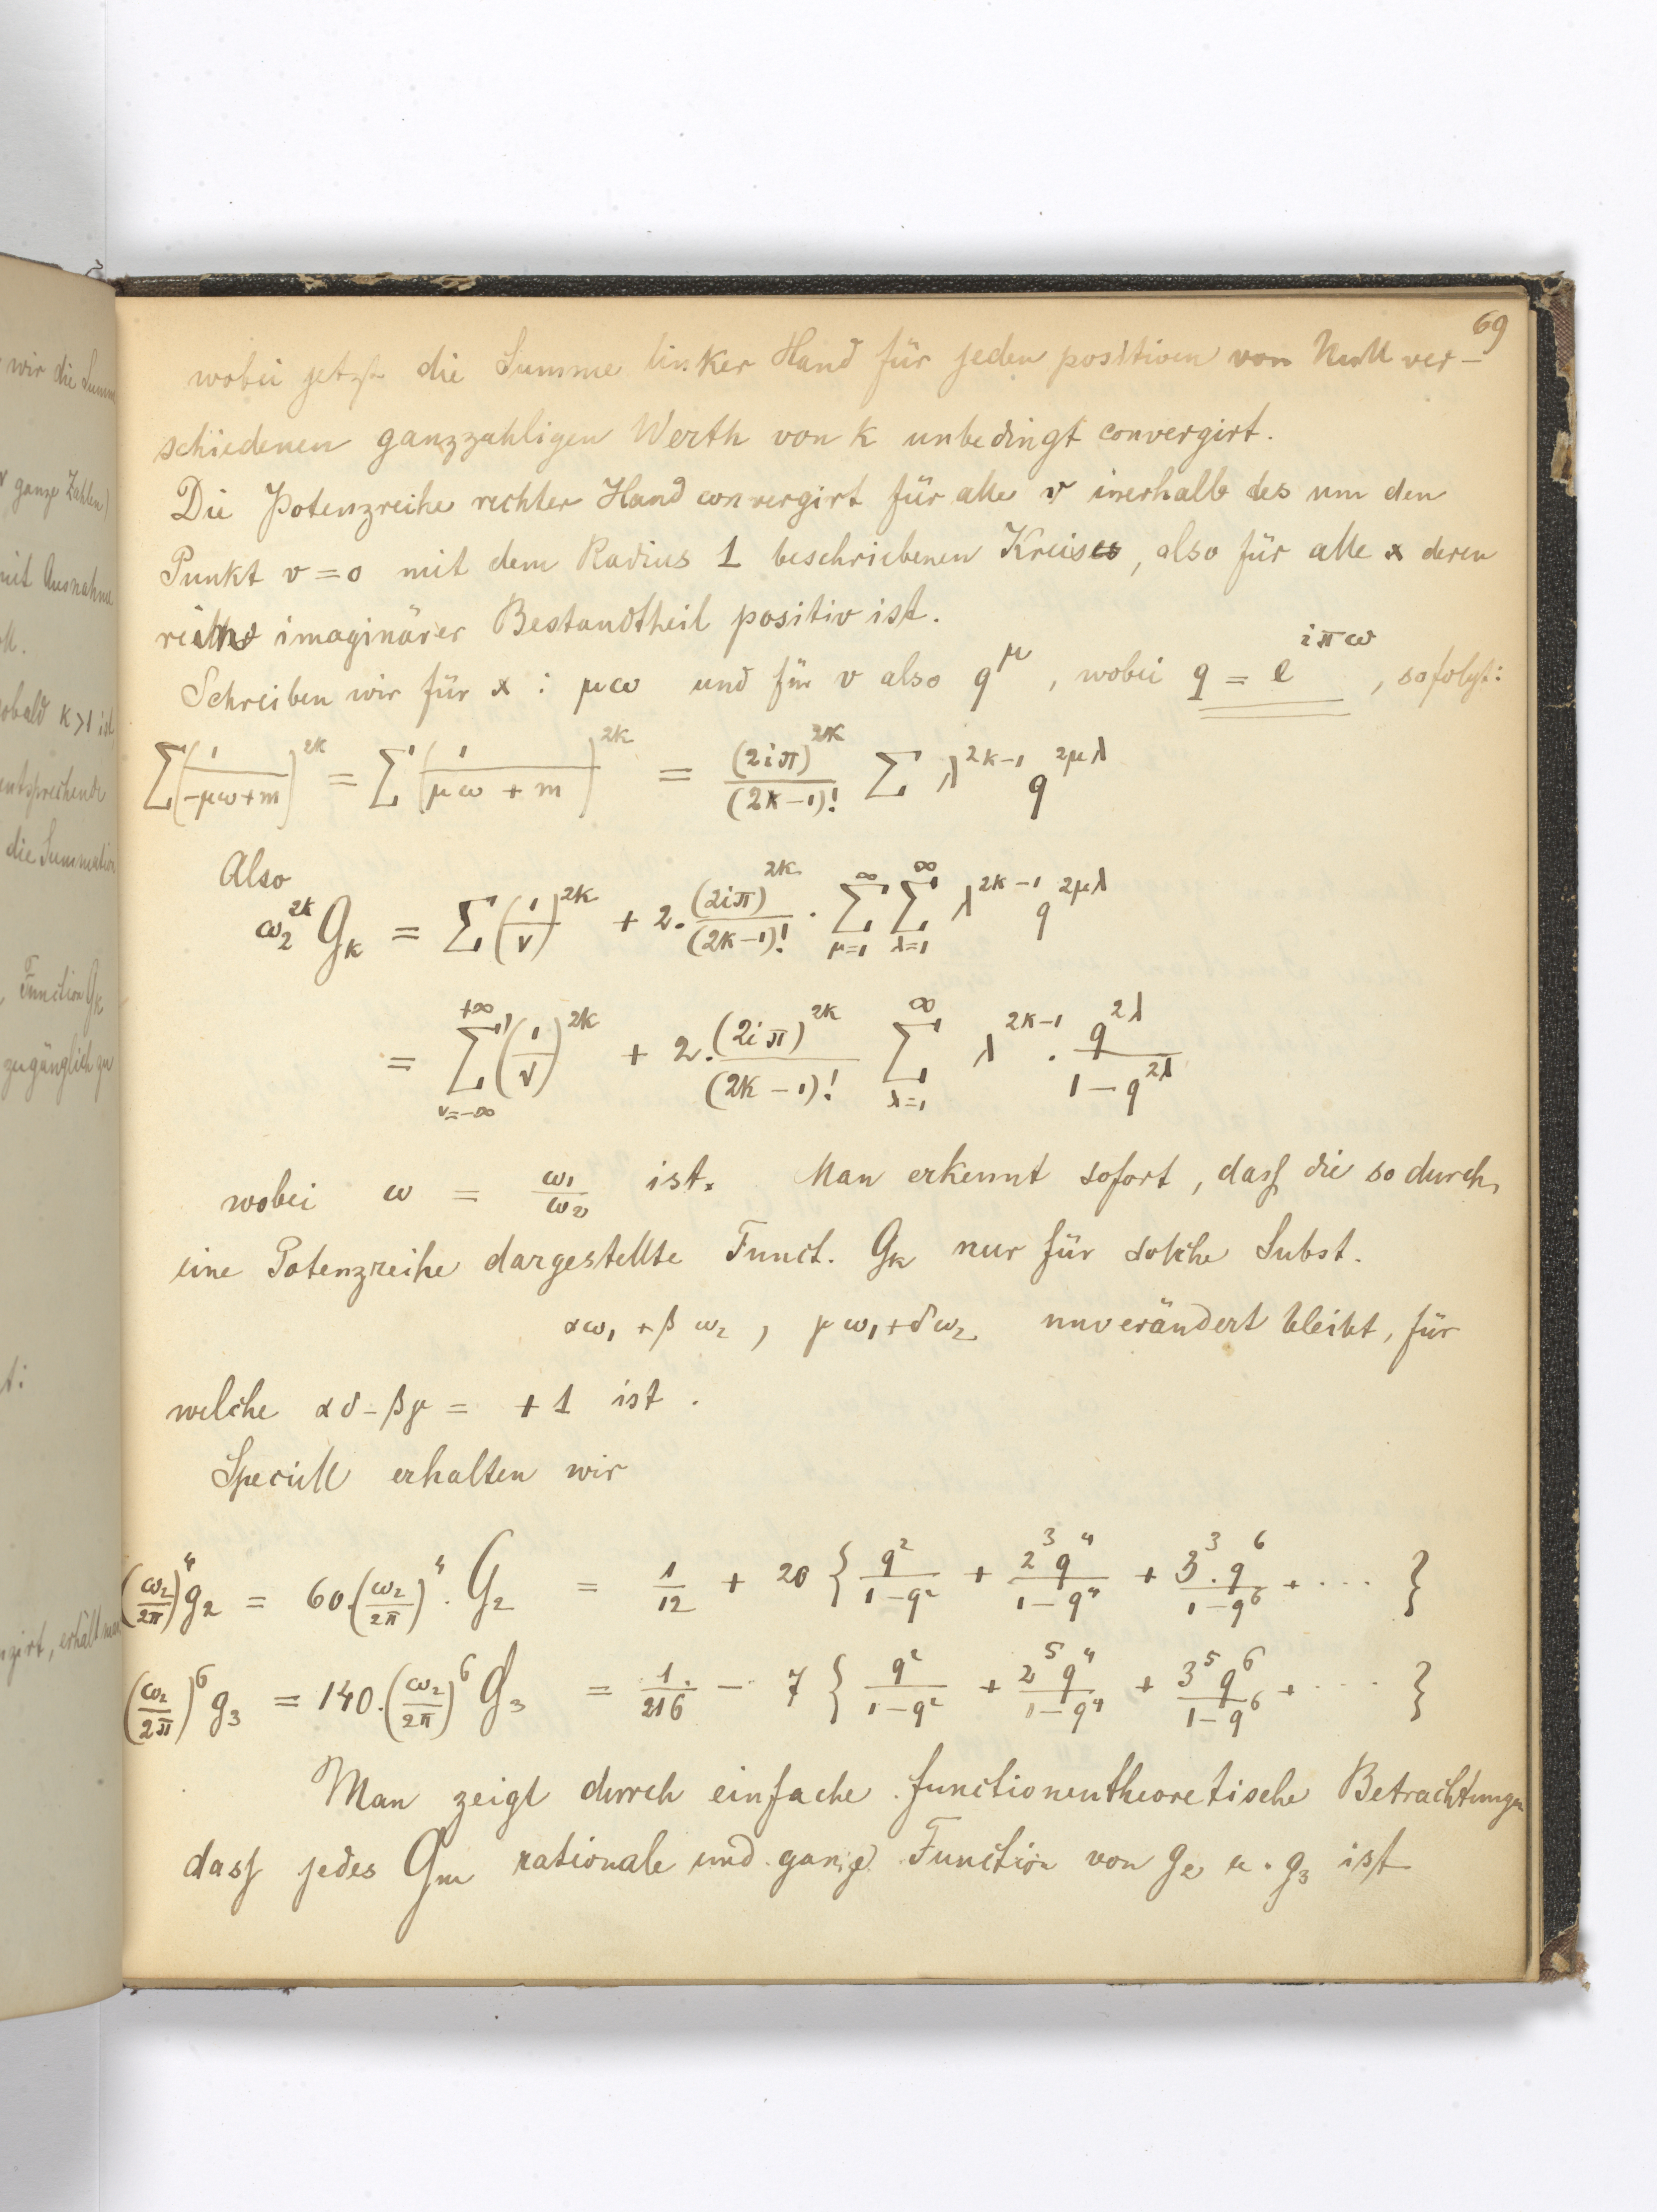 69
wobei jetzt die Summe linker Hand für jeden positiven von Null ver-
schiedenen ganzzahligen Werth von k unbedingt convergirt.
Die Potenzreihe rechter Hand convergirt für alle v inerhalb des um den
Punkt v = 0 mit dem Radius 1 beschriebenen Kreises, also für alle x deren
imaginärer Bestandtheil positiv ist.
Schreiben wir für x : μω und für v also q^μ, wobei q = e^{iπω}, so folgt:
∑(1/(-μω+m))^{2k} = ∑(1/(μω+m))^{2k} = (2iπ)^{2k}/(2k-1)! ∑ λ^{2k-1} q^{2μλ}
Also
ω₂^{2k} G_k = ∑'(1/ν)^{2k} + 2·(2iπ)^{2k}/(2k-1)! · ∑_{μ=1}^∞ ∑_{λ=1}^∞ λ^{2k-1} q^{2μλ}
= ∑'_{ν=-∞}^{+∞} (1/ν)^{2k} + 2·(2iπ)^{2k}/(2k-1)! ∑_{λ=1}^∞ λ^{2k-1} · q^{2λ}/(1-q^{2λ})
wobei ω = ω₁/ω₂ ist. Man erkennt sofort, dass die so durch
eine Potenzreihe dargestellte Funct. G_k nur für solche Subst.
αω₁ + βω₂, γω₁ + δω₂ unverändert bleibt, für
welche αδ - βγ = +1 ist.
Speciell erhalten wir
(ω₂/2π)⁴ g₂ = 60·(ω₂/2π)⁴ · G₂ = 1/12 + 20 { q²/(1-q²) + 2³q⁴/(1-q⁴) + 3³·q⁶/(1-q⁶) + ···· }
(ω₂/2π)⁶ g₃ = 140·(ω₂/2π)⁶ G₃ = 1/216 - 7 { q²/(1-q²) + 2⁵q⁴/(1-q⁴) + 3⁵q⁶/(1-q⁶) + ···· }
Man zeigt durch einfache functionentheoretische Betrachtungen
dass jedes G_m rationale und ganze Function von g₂ u. g₃ ist